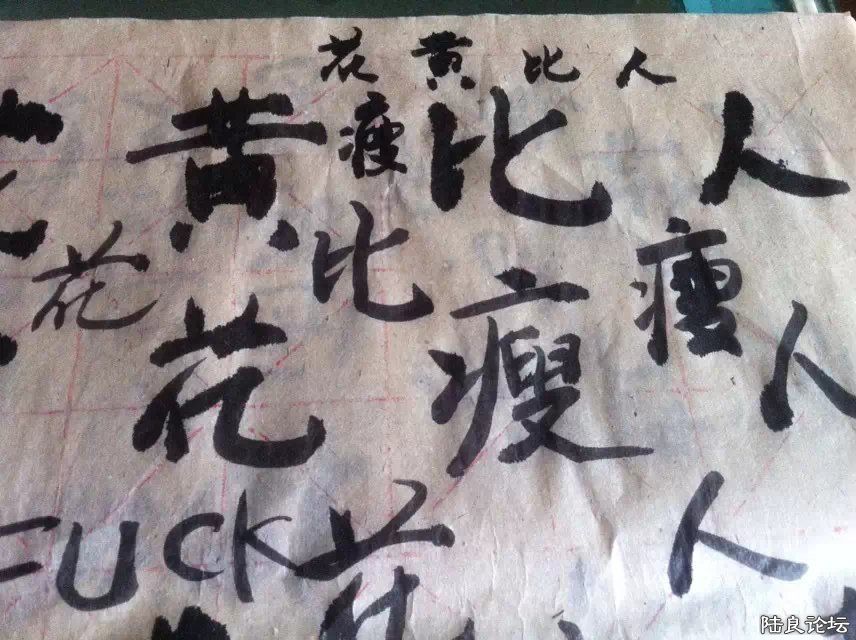 花黄比人
黄瘦比人
花比瘦
花瘦人
FUCK花人
陆良论坛